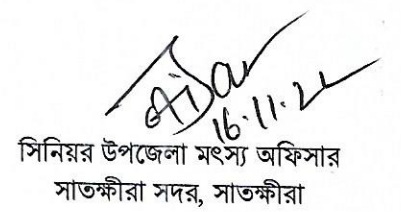 16.11.22
সিনিয়র উপজেলা মৎস্য অফিসার
সাতক্ষীরা সদর, সাতক্ষীরা